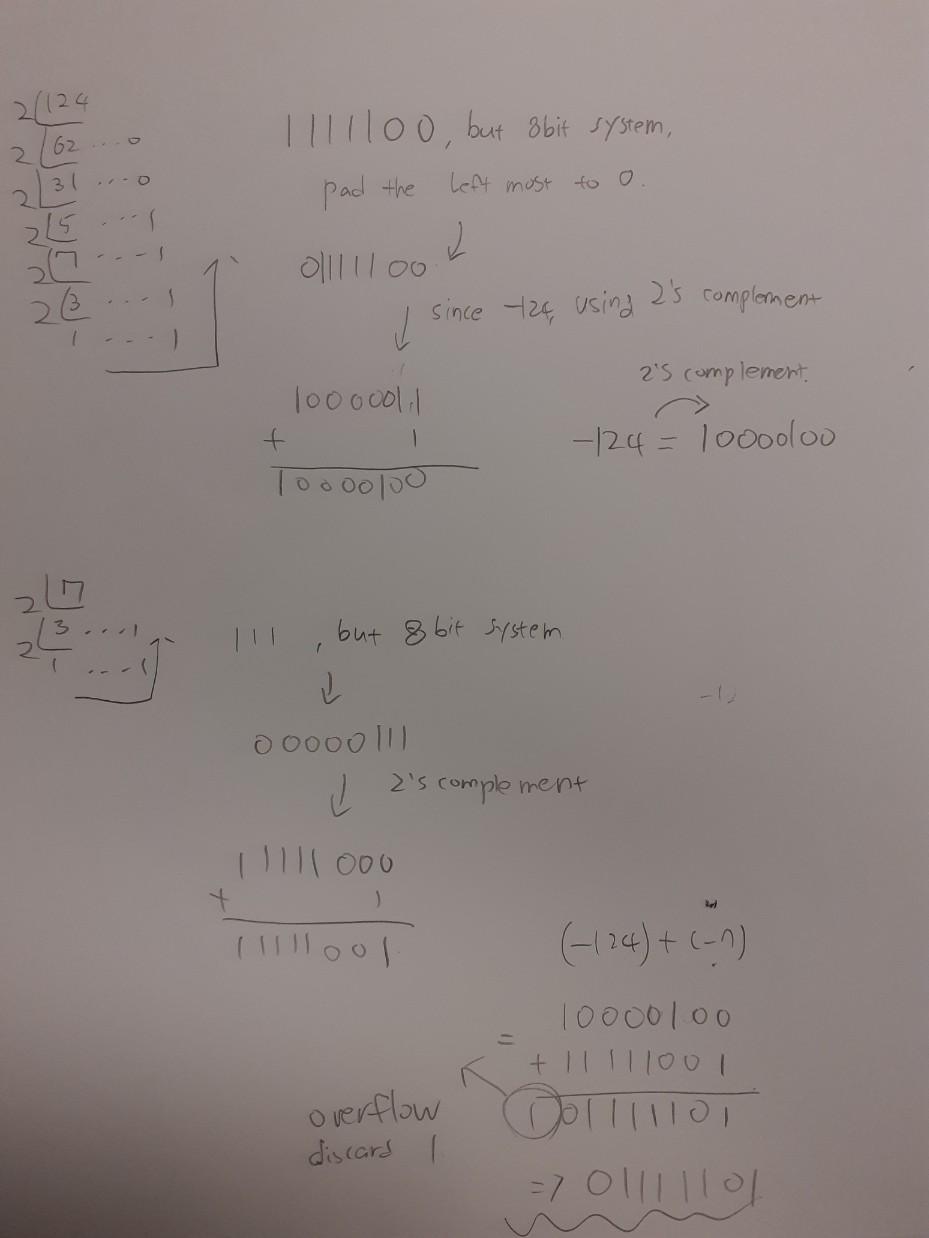 2 124
2 62 ... 0
2 31 ... 0
2 5 ... 1
2 7 ... 1
2 3 ... 1
1 ... 1
1111100, but 8bit system,
pad the left most to 0.
01111100
since -124, using 2's complement
10000011
+ 1
10000100
2's complement.
-124 = 10000100
2 7
2 3 ... 1
1 ... 1
111, but 8 bit system
00000111
2's complement
11111000
+ 1
11111001
(-124) + (-7)
= 10000100
+ 11111001
101111101
overflow
discard 1
=> 01111101